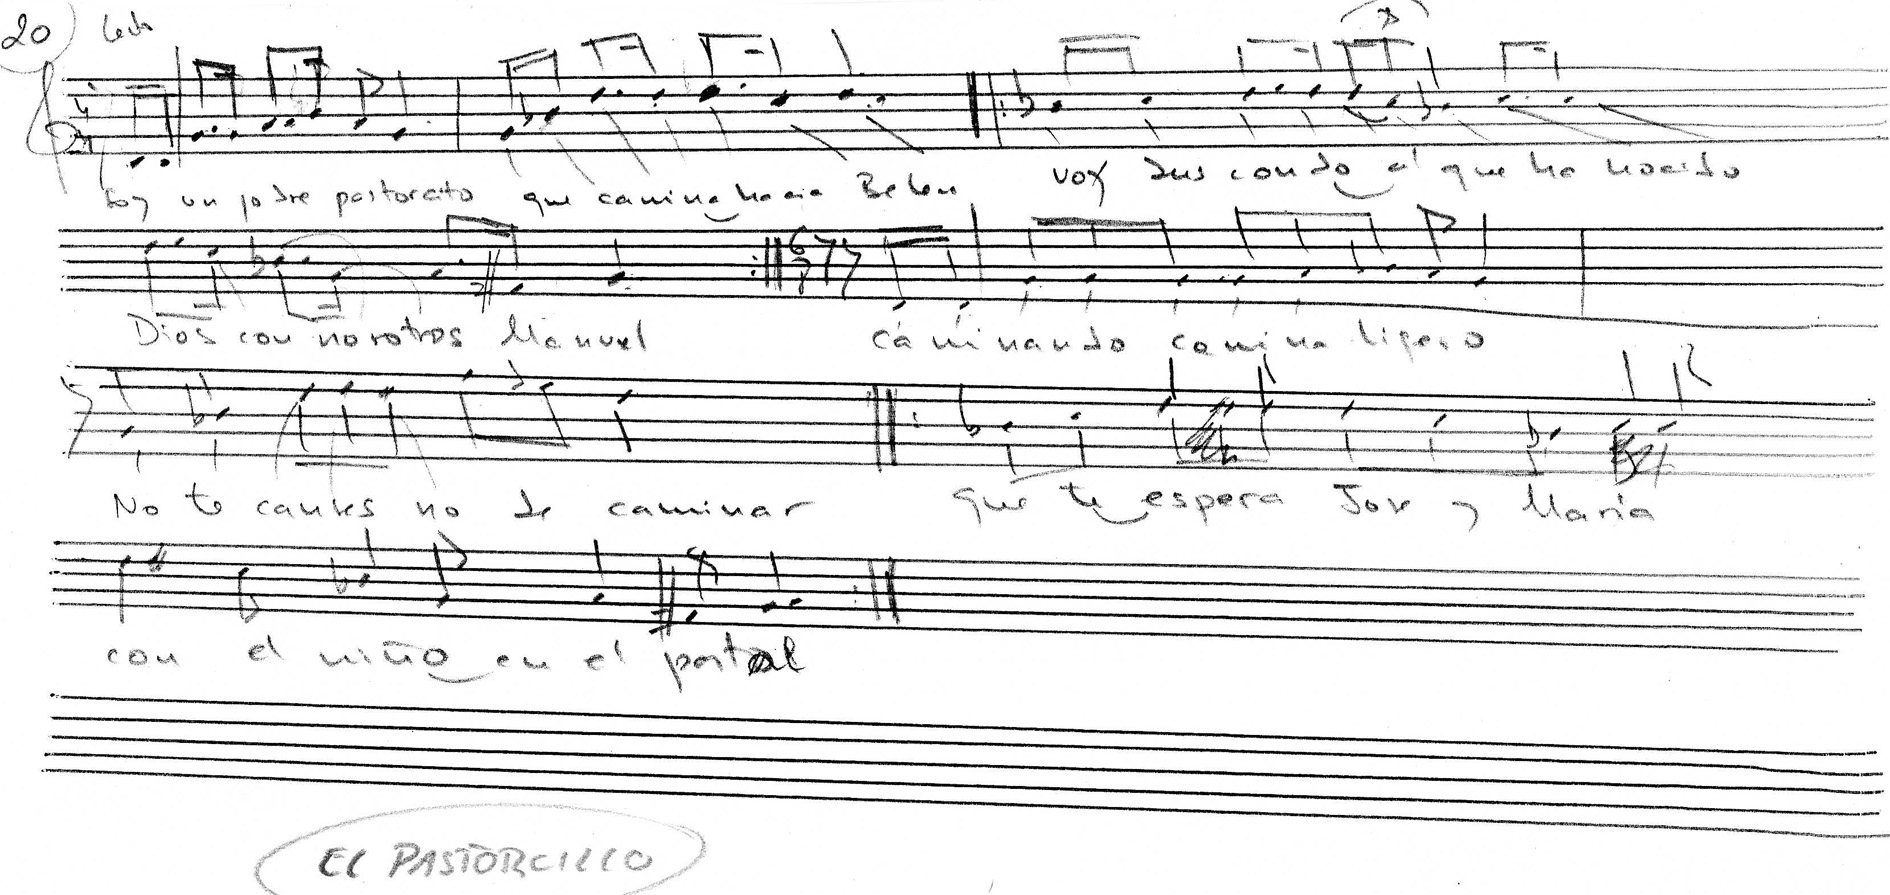 20 Lento
Soy un pobre pastorcito que camina hacia Belen
voy buscando al que ha nacido
Dios con nosotros Manuel
caminando camina ligero
No te canses no de caminar
que te espera Jose y Maria
con el niño en el portal
EL PASTORCILLO